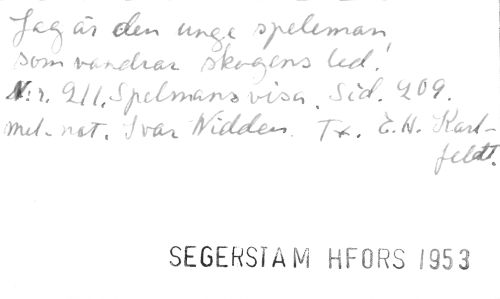 Jag är den unge speleman
som vandrar skogens led.
N:r. 211. Spelmansvisa. Sid. 209.
mel-not. Ivar Widden. Tx. E.A. Karl-
feldt.
SEGERSTAM HFORS 1953